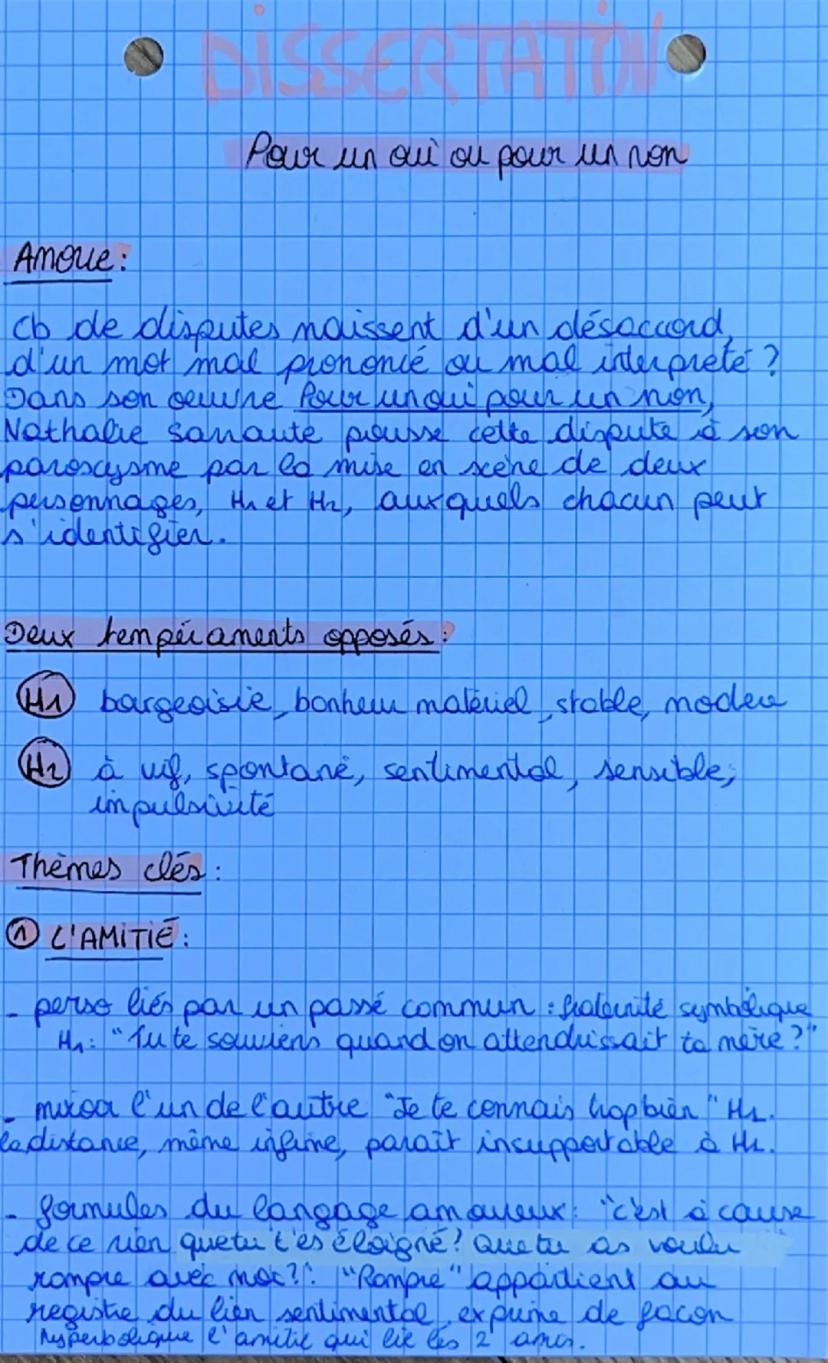 DISSERTATION
Pour un oui ou pour un non
Amorce:
Cb de disputes naissent d'un désaccord,
d'un mot mal prononcé ou mal interprété ?
Dans son oeuvre Pour un oui pour un non,
Nathalie Sarraute pousse cette dispute à son
paroxysme par la mise en scène de deux
personnages, H1 et H2, auxquels chacun peut
s'identifier.
Deux tempéraments opposés:
H1 bourgeoisie, bonheur matériel, stable, modéré
H2 à vif, spontané, sentimental, sensible,
impulsivité
Thèmes clés:
① L'AMITIÉ:
- perso liés par un passé commun : fraternité symbolique
H1: "Tu te souviens quand on attendrissait ta mère ?"
- miroir l'un de l'autre "Je te connais trop bien" H1.
la distance, même infime, paraît insupportable à H1.
- formules du langage amoureux: "c'est à cause
de ce rien que tu t'es éloigné? Que tu as voulu
rompre avec moi?". "Rompre" appartient au
registre du lien sentimental, exprime de façon
hyperbolique l'amitié qui lie les 2 amis.